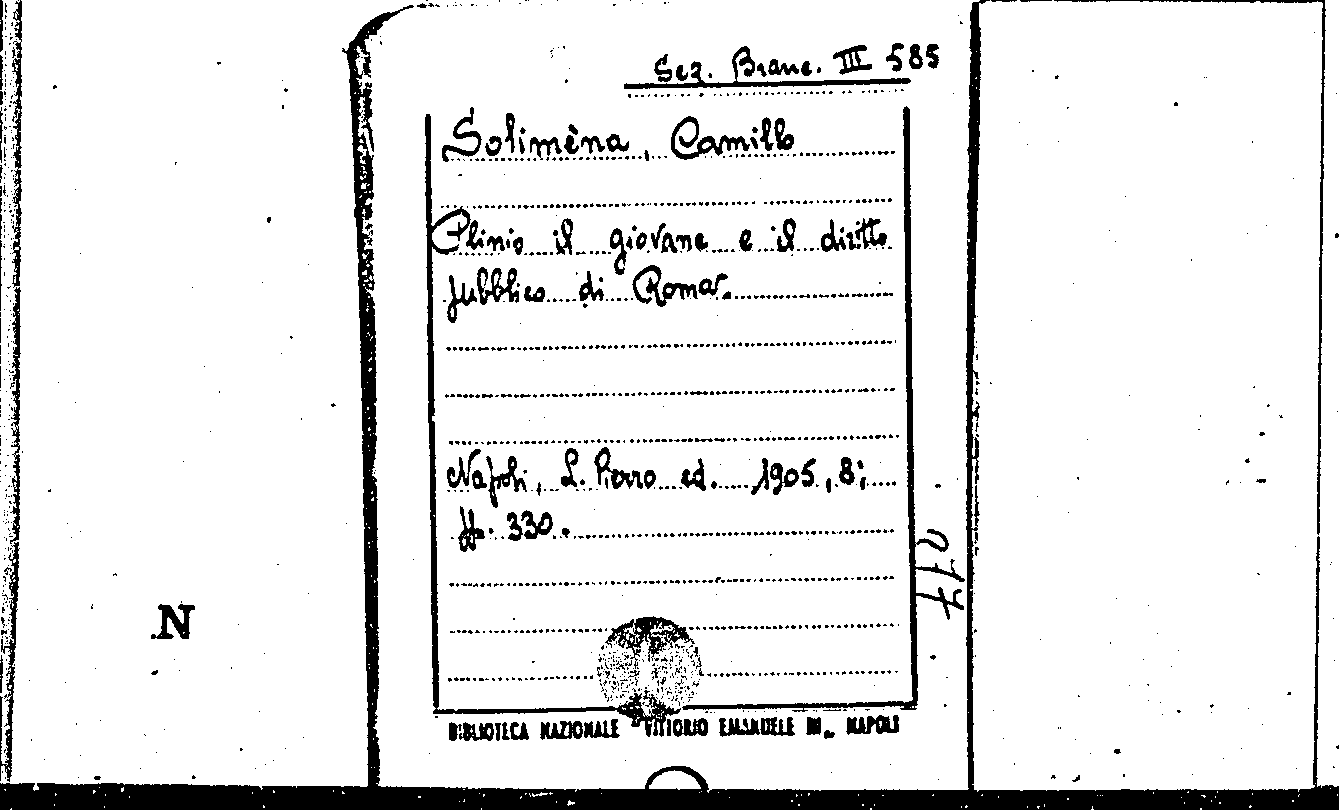 Sez. Branc. III 585
Solimèna, Camillo
Plinio il giovane e il diritto
pubblico di Roma.
Napoli, L. Pierro ed. 1905, 8;
pp. 330.
217
N
BIBLIOTECA NAZIONALE "VITTORIO EMANUELE III„ NAPOLI